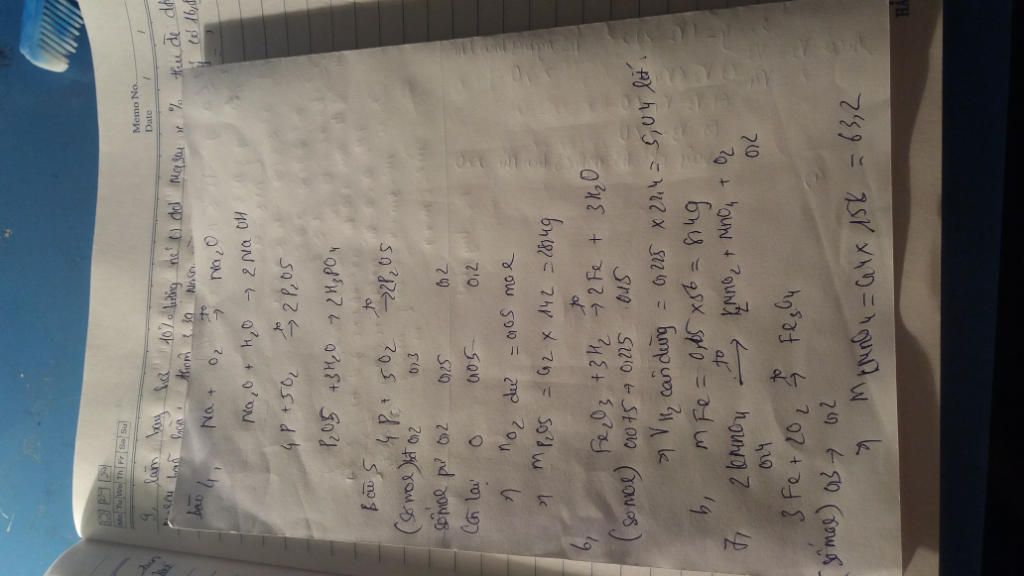 Memo No.
Date
Bài 4, Na + O2 -to-> Na2O
Na2O + H2O → 2NaOH
4P + 5O2 -to-> 2P2O5
P2O5 + 3H2O → 2H3PO4
Bài 5 4P + 5O2 -to-> 2P2O5
(số mol) 0,2 0,3
số mol pư 0,2 0,25 0,2
Còn lại 0 0,05 0,2
=> nO2 dư = 0,05 mol
=> mP2O5 = 0,2 x 142 = 28,4g
6, Fe2O3 + 3H2 -to-> 2Fe + 3H2O
(số mol) 0,075 → 0,225 0,15
=> VH2 cần dùng = 0,225 x 22,4 = 5,04 lít
b, mFe = 0,15 x 56 = 8,4g
7, 2KMnO4 -to-> K2MnO2 + MnO4 + O2
0,4 0,2
3Fe + 2O2 -to-> Fe3O4
số mol) 0,3 → 0,2
=> mKMnO4 = 0,4 x 158 = 63,2